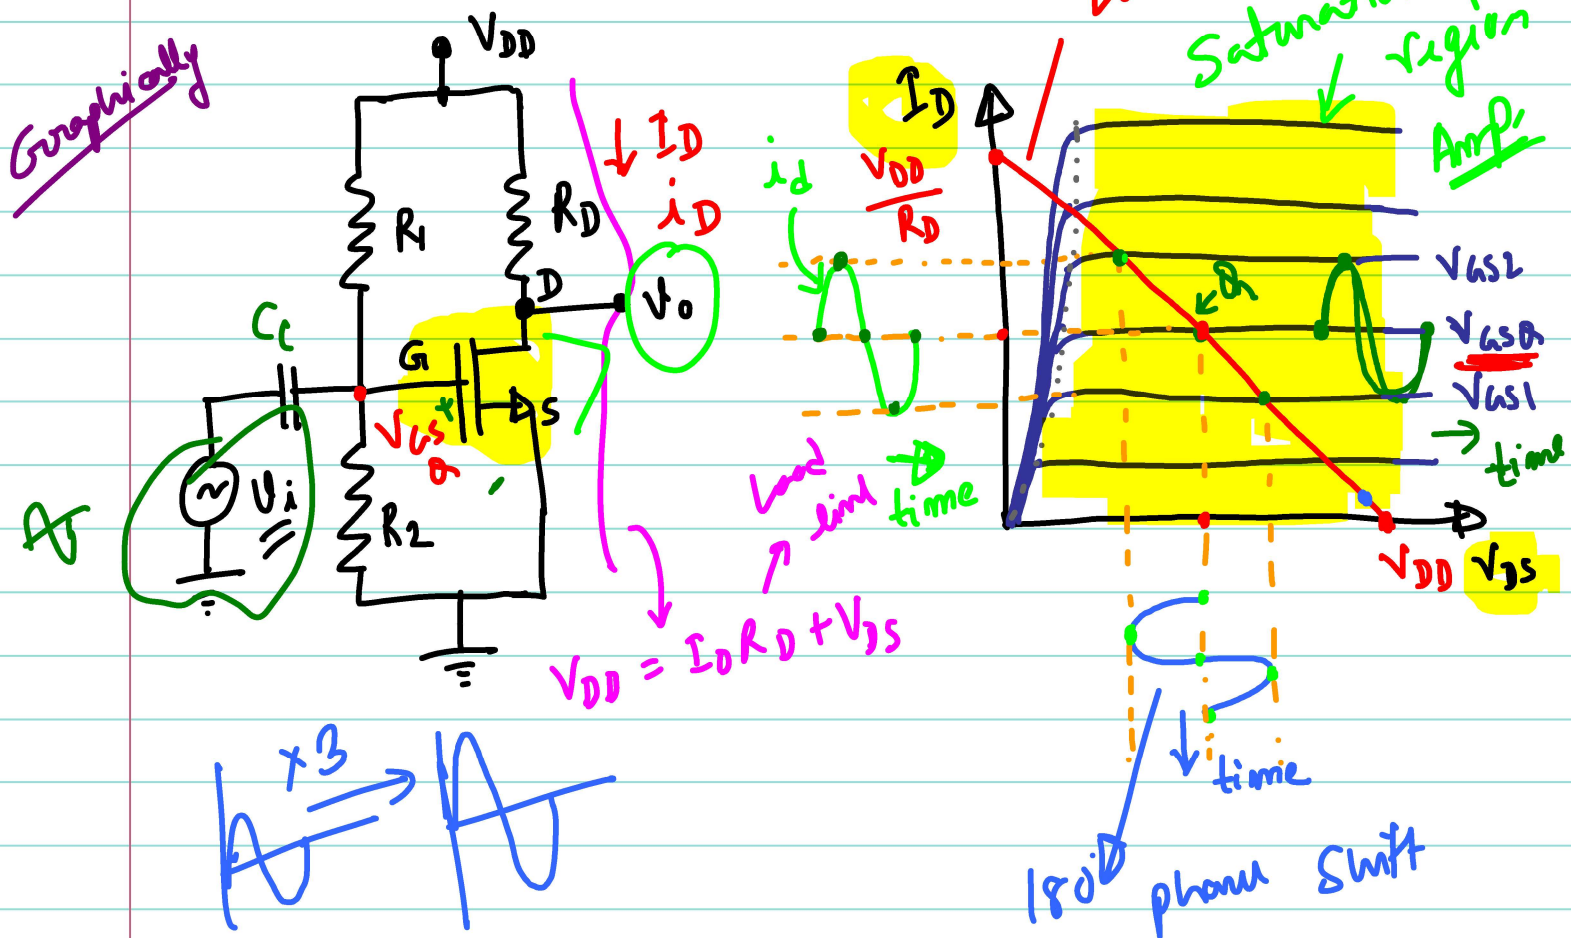 Graphically
VDD
R1
RD
↓ ID
iD
D
Vo
Cc
G
S
VGSQ
+
-
Vi
R2
VDD = IDRD + VDS
Load line
x3
ID
VDD/RD
id
time
Saturation
region
Amp.
Q
VGS2
VGSQ
VGS1
time
VDD
VDS
time
180° phase shift